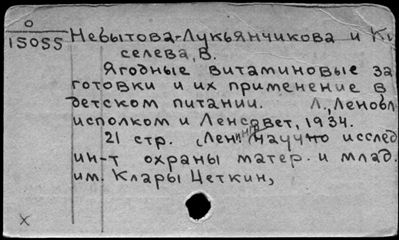 O
15055
Невытова-Лукьянчикова и Ки
селева, В.
Ягодные витаминовые за
готовки и их применение в
детском питании. Л., Леноблисполком и Ленсовет, 1934.
21 стр. (Ленингр научно исслед
ин-т охраны матер. и млад.
им. Клары Цеткин,
x